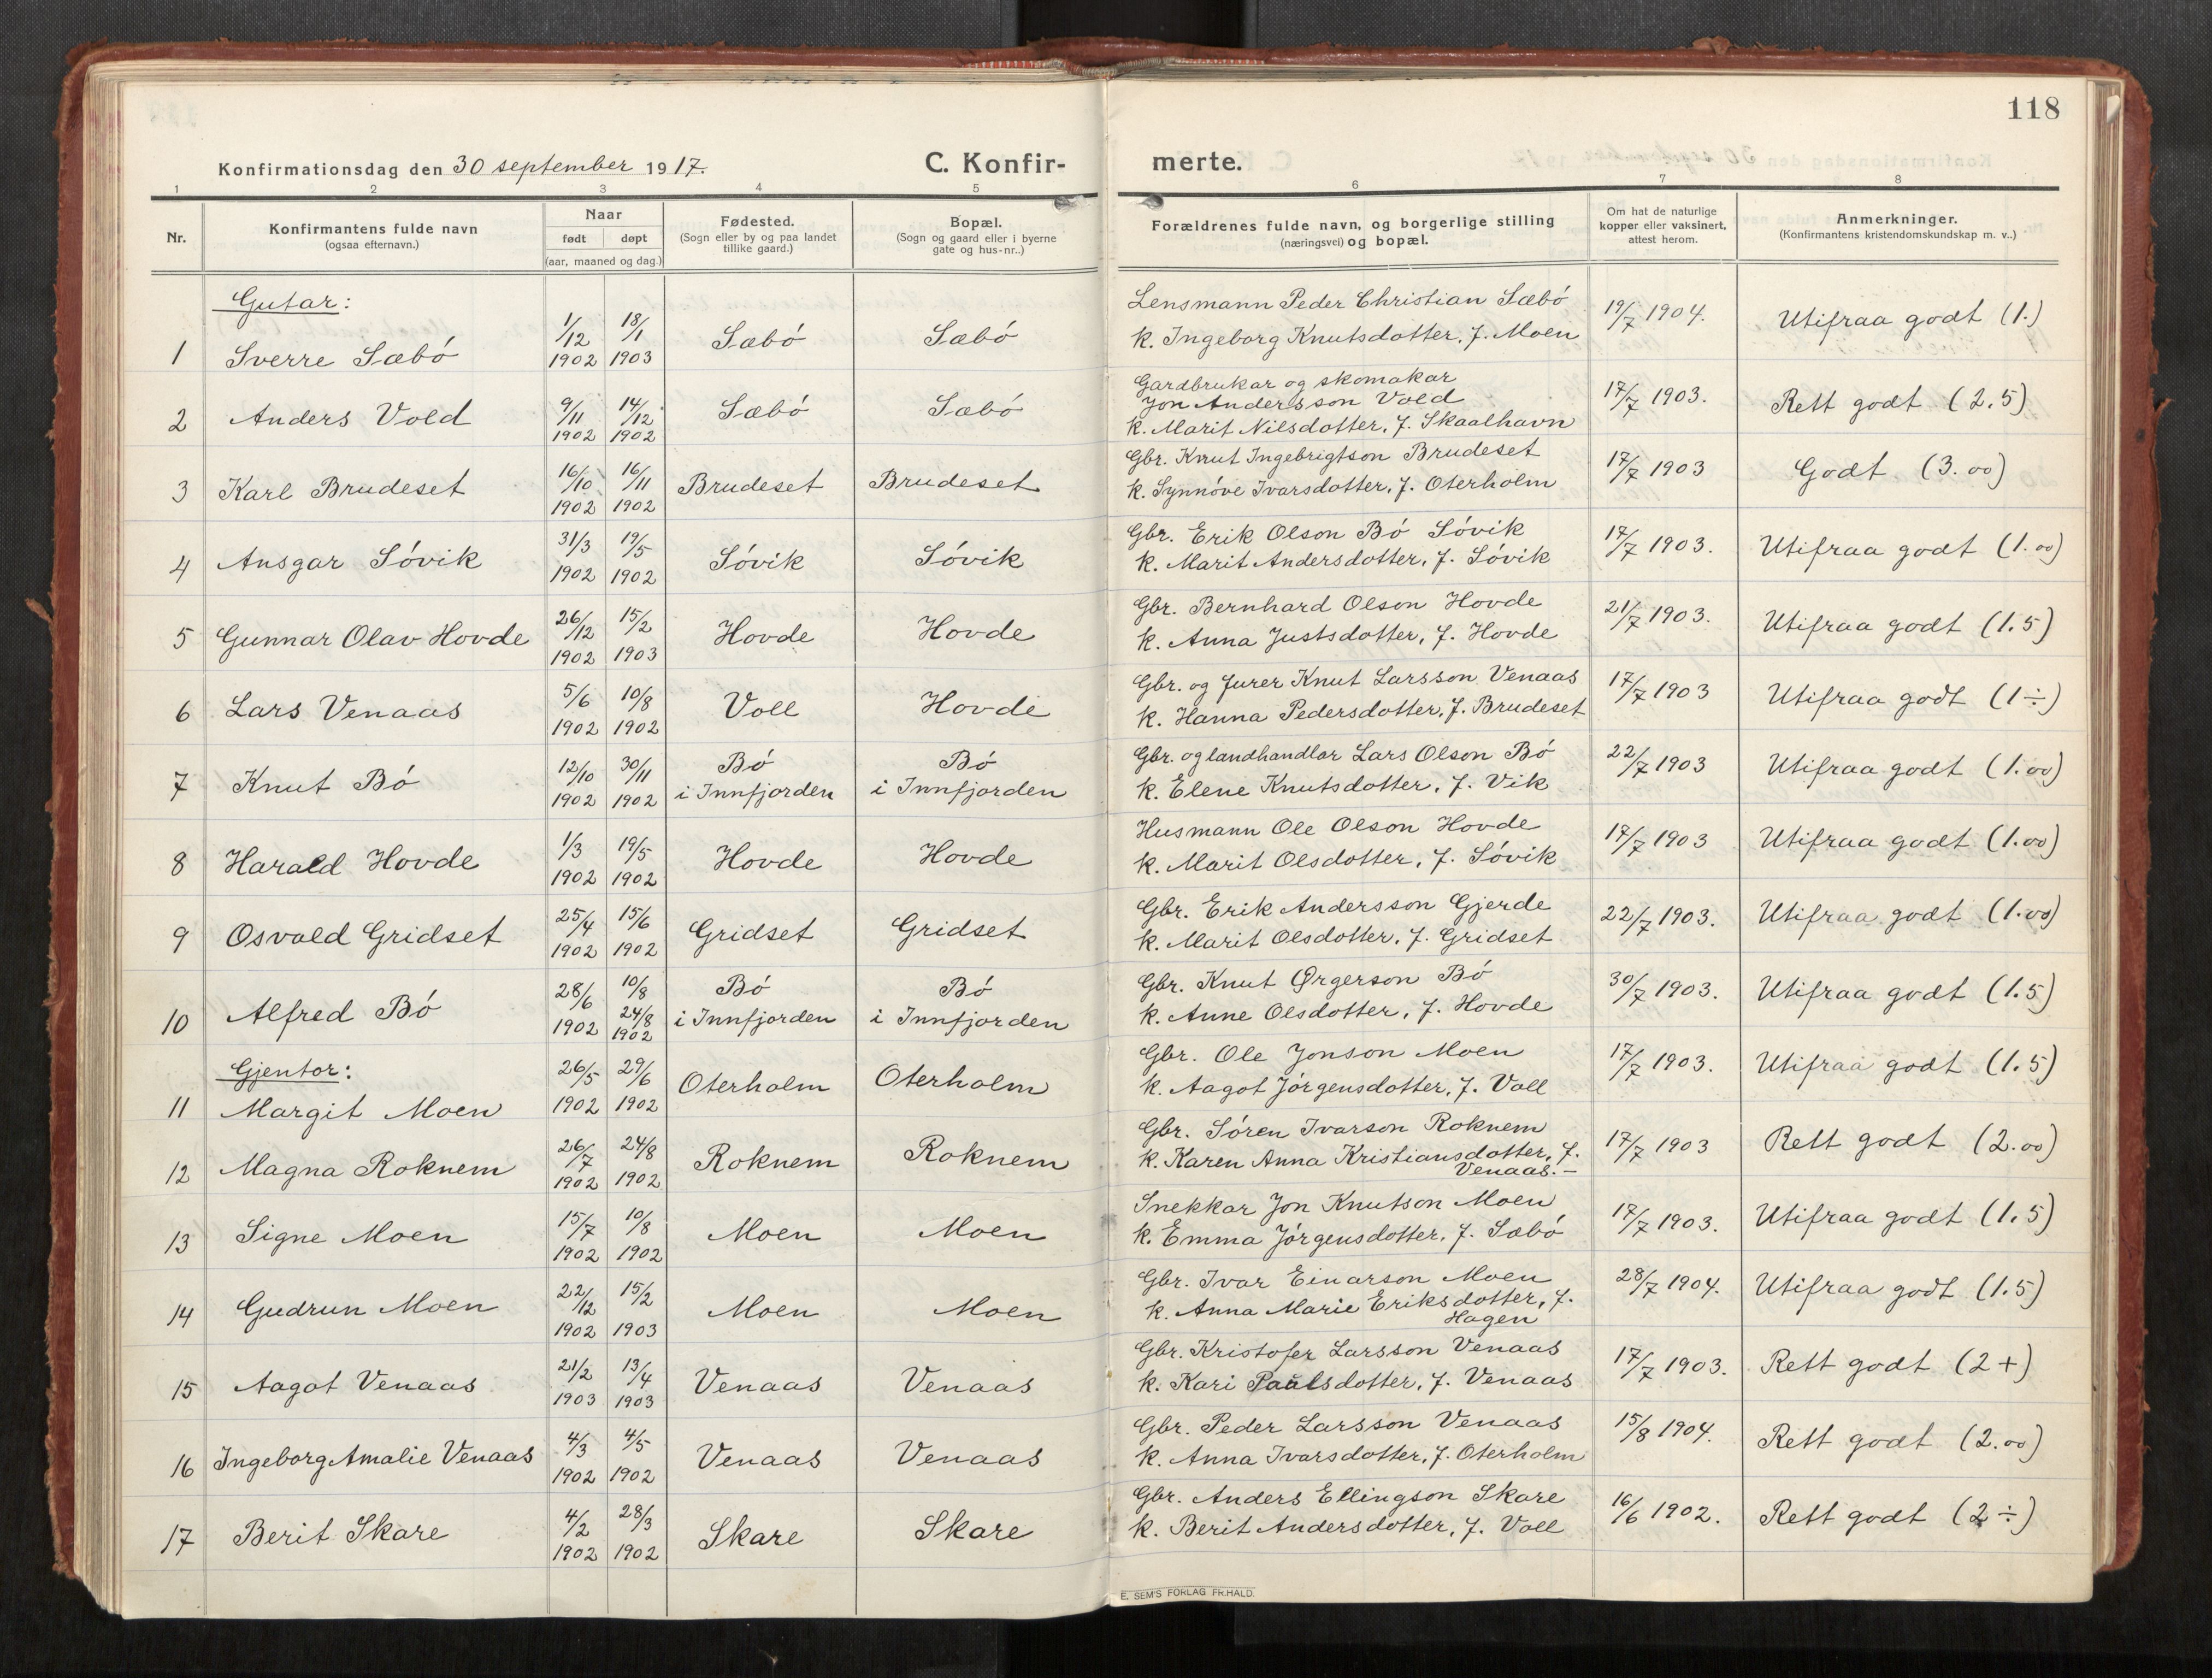 118
Konfirmationsdag den 30 september 1917.
C. Konfir-
merte.
1 2 3 4 5 6 7 8
Nr.
Konfirmantens fulde navn
(ogsaa efternavn.)
Naar
født døpt
(aar, maaned og dag.)
Fødested.
(Sogn eller by og paa landet
tillike gaard.)
Bopæl.
(Sogn og gaard eller i byerne
gate og hus-nr..)
Forældrenes fulde navn, og borgerlige stilling
(næringsvei) og bopæl.
Om hat de naturlige
kopper eller vaksinert,
attest herom.
Anmerkninger.
(Konfirmantens kristendomskundskap m. v..)
Gutar:
1 Sverre Sæbó 1/12 1902 18/1 1903 Sæbó Sæbó
Lensmann Peder Christian Sæbó
k. Ingeborg Knutsdotter, f. Moen
19/7 1904. Utifraa godt (1.)
2 Anders Vold 9/11 1902 14/12 1902 Sæbó Sæbó
Gardbrukar og skomakar
Jon Andersson Vold
k. Marit Nilsdotter, f. Skaalhavn
17/7 1903. Rett godt (2.5)
3 Karl Brudeset 16/10 1902 16/11 1902 Brudeset Brudeset
Gbr. Knut Ingebrigtson Brudeset
k. Synnóve Ivarsdotter, f. Oterholm
17/7 1903 Godt (3.00)
4 Ansgar Sóvik 31/3 1902 19/5 1902 Sóvik Sóvik
Gbr. Erik Olson Bó Sóvik
k. Marit Andersdotter, f. Sóvik
17/7 1903. Utifraa godt (1.00)
5 Gunnar Olav Hovde 26/12 1902 15/2 1903 Hovde Hovde
Gbr. Bernhard Olson Hovde
k. Anna Justsdotter, f. Hovde
21/7 1903. Utifraa godt (1.5)
6 Lars Venaas 5/6 1902 10/8 1902 Voll Hovde
Gbr. og furer Knut Larsson Venaas
k. Hanna Pedersdotter, f. Brudeset
17/7 1903 Utifraa godt (1÷)
7 Knut Bó 12/10 1902 30/11 1902 Bó i Innfjorden Bó i Innfjorden
Gbr. og landhandlar Lars Olson Bó
k. Elene Knutsdotter, f. Vik
22/7 1903 Utifraa godt (1.00)
8 Harald Hovde 1/3 1902 19/5 1902 Hovde Hovde
Husmann Ole Olson Hovde
k. Marit Olsdotter, f. Sóvik
17/7 1903 Utifraa godt (1.00)
9 Osvald Gridset 25/4 1902 15/6 1902 Gridset Gridset
Gbr. Erik Andersson Gjerde
k. Marit Olsdotter, f. Gridset
22/7 1903. Utifraa godt (1.00)
10 Alfred Bó 28/6 1902 10/8 24/8 1902 Bó i Innfjorden Bó i Innfjorden
Gbr. Knut Ørgerson Bó
k. Anne Olsdotter, f. Hovde
30/7 1903. Utifraa godt (1.5)
Gjentor:
11 Margit Moen 26/5 1902 29/6 1902 Oterholm Oterholm
Gbr. Ole Jonson Moen
k. Aagot Jórgensdotter, f. Voll
17/7 1903. Utifraa godt (1.5)
12 Magna Roknem 26/7 1902 24/8 1902 Roknem Roknem
Gbr. Sóren Ivarson Roknem
k. Karen Anna Kristiansdotter, f.
Venaas.-
17/7 1903 Rett godt (2.00)
13 Signe Moen 15/7 1902 10/8 1902 Moen Moen
Snekkar Jon Knutson Moen
k. Emma Jórgensdotter, f. Sæbó
17/7 1903. Utifraa godt (1.5)
14 Gudrun Moen 22/12 1902 15/2 1903 Moen Moen
Gbr. Ivar Einarson Moen
k. Anna Marie Eriksdotter, f.
Hagen
28/7 1904. Utifraa godt (1.5)
15 Aagot Venaas 21/2 1903 13/4 1903 Venaas Venaas
Gbr. Kristofer Larsson Venaas
k. Kari Paulsdotter, f. Venaas
17/7 1903. Rett godt (2+)
16 Ingeborg Amalie Venaas 4/3 1902 4/5 1902 Venaas Venaas
Gbr. Peder Larsson Venaas
k. Anna Ivarsdotter, f. Oterholm
15/8 1904. Rett godt (2.00)
17 Berit Skare 4/2 1902 28/3 1902 Skare Skare
Gbr. Anders Ellingson Skare
k. Berit Andersdotter, f. Voll
16/6 1902. Rett godt (2÷)
E. SEM'S FORLAG FR.HALD.